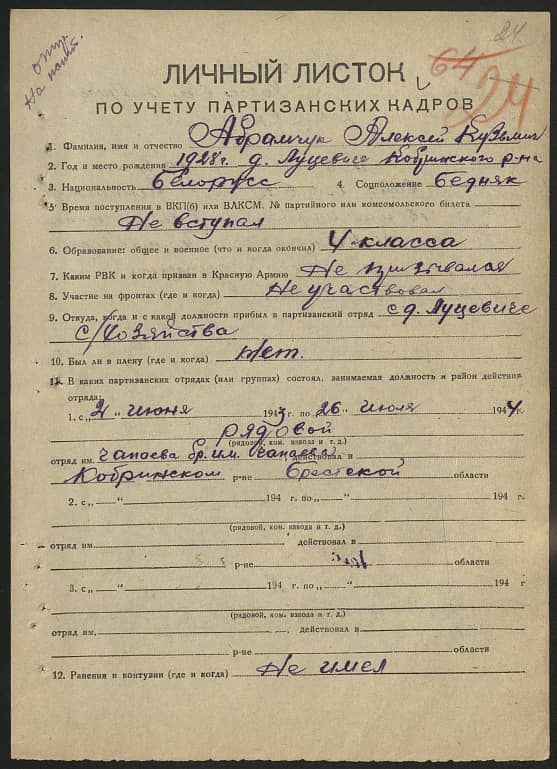 24.
64
24
На
ЛИЧНЫЙ ЛИСТОК
ПО УЧЕТУ ПАРТИЗАНСКИХ КАДРОВ
1. Фамилия, имя и отчество Абрамчук Алексей Кузьмич
2. Год и место рождения 1928 г. д. Луцевичи Кобринского р-на
3. Национальность белорусс 4. Соцположение бедняк
5. Время поступления в ВКП(б) или ВЛКСМ. № партийного или комсомольского билета
Не вступал
6. Образование: общее и военное (что и когда окончил) 4 класса
7. Каким РВК и когда призван в Красную Армию Не призывался
8. Участие на фронтах (где и когда) Не участвовал
9. Откуда, когда и с какой должности прибыл в партизанский отряд с д. Луцевичи
с/хозяйства
10. Был ли в плену (где и когда) Нет.
11. В каких партизанских отрядах (или группах) состоял, занимаемая должность и район действия
отряда:
1. с „2“ июня 1943 г. по „26“ июля 1944 г.
рядовой
(рядовой, ком. взвода и т. д.)
отряд им. Чапаева бр. им. Чапаева действовал в
Кобринском р-не Брестской области
2. с „ “ 194 г. по „ “ 194 г.
(рядовой, ком. взвода и т. д.)
отряд им. действовал в
р-не области
3. с „ “ 194 г. по „ “ 194 г
(рядовой, ком. взвода и т. д.)
отряд им. действовал в
р-не области
12. Ранения и контузии (где и когда) Не имел